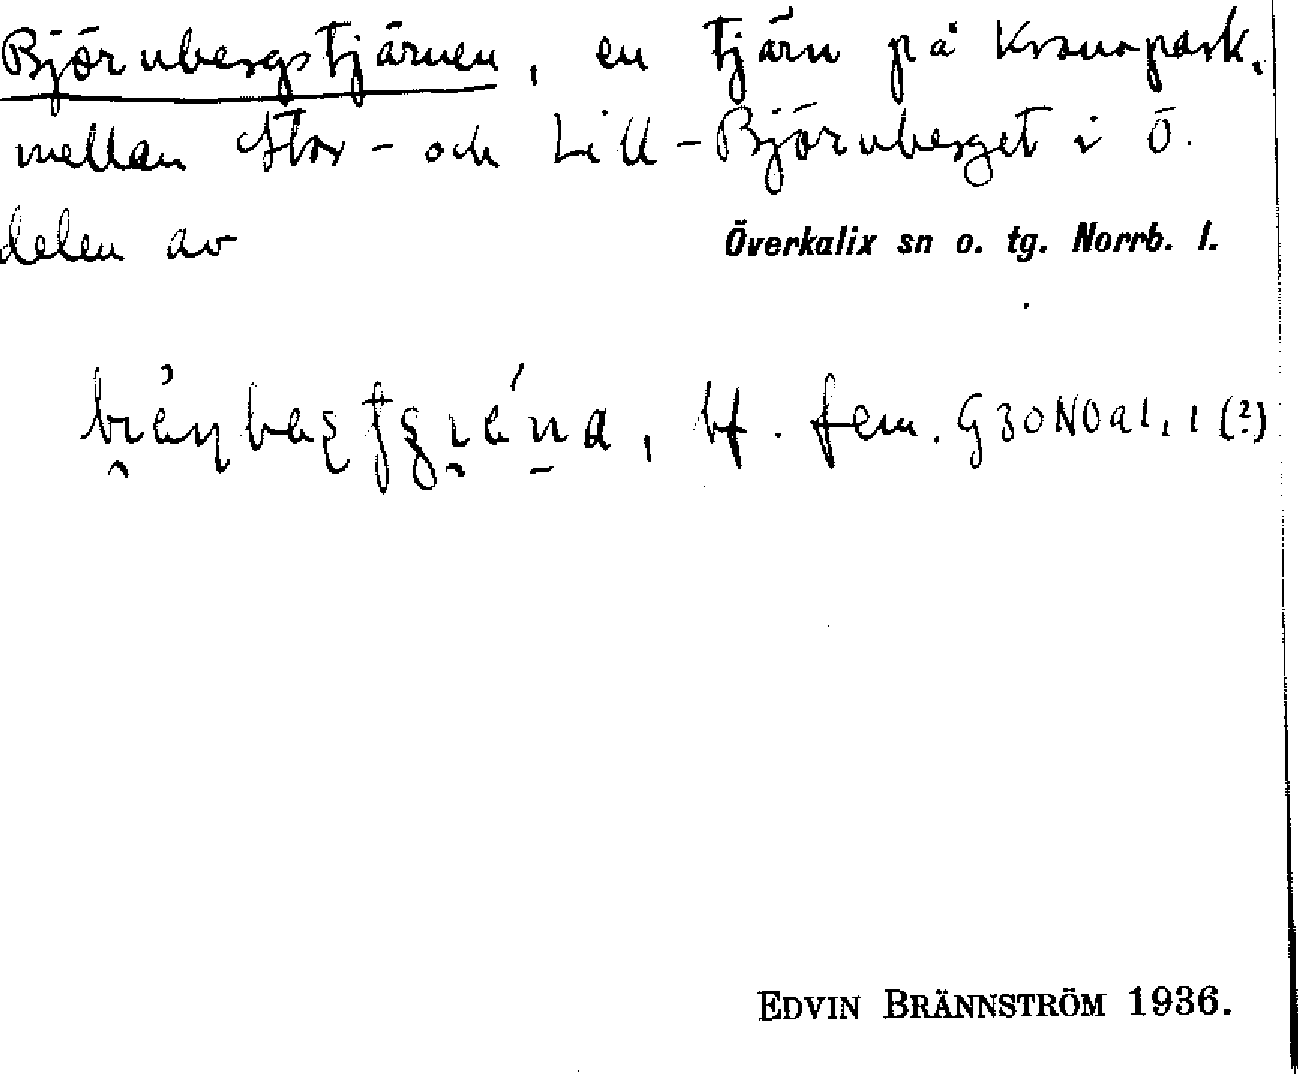 Björnbergstjärnen, en tjärn på Kronopark.
mellan Stor- och Lill-Björnberget i ö.
delen av Överkalix sn o. tg. Norrb. l.
bf. fem. G30NOa1, 1 (?)
EDVIN BRÄNNSTRÖM 1936.